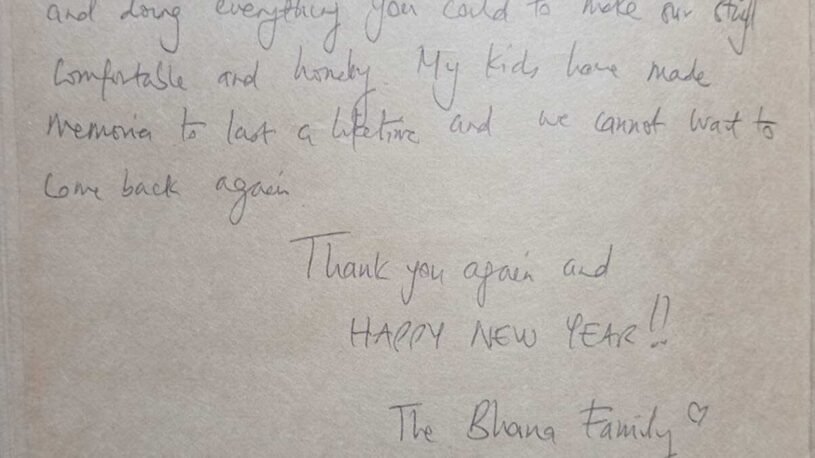 and doing everything you could to make our stay
comfortable and homely. My kids have made
memories to last a lifetime and we cannot wait to
come back again
Thank you again and
HAPPY NEW YEAR!!
The Bhana Family ♡